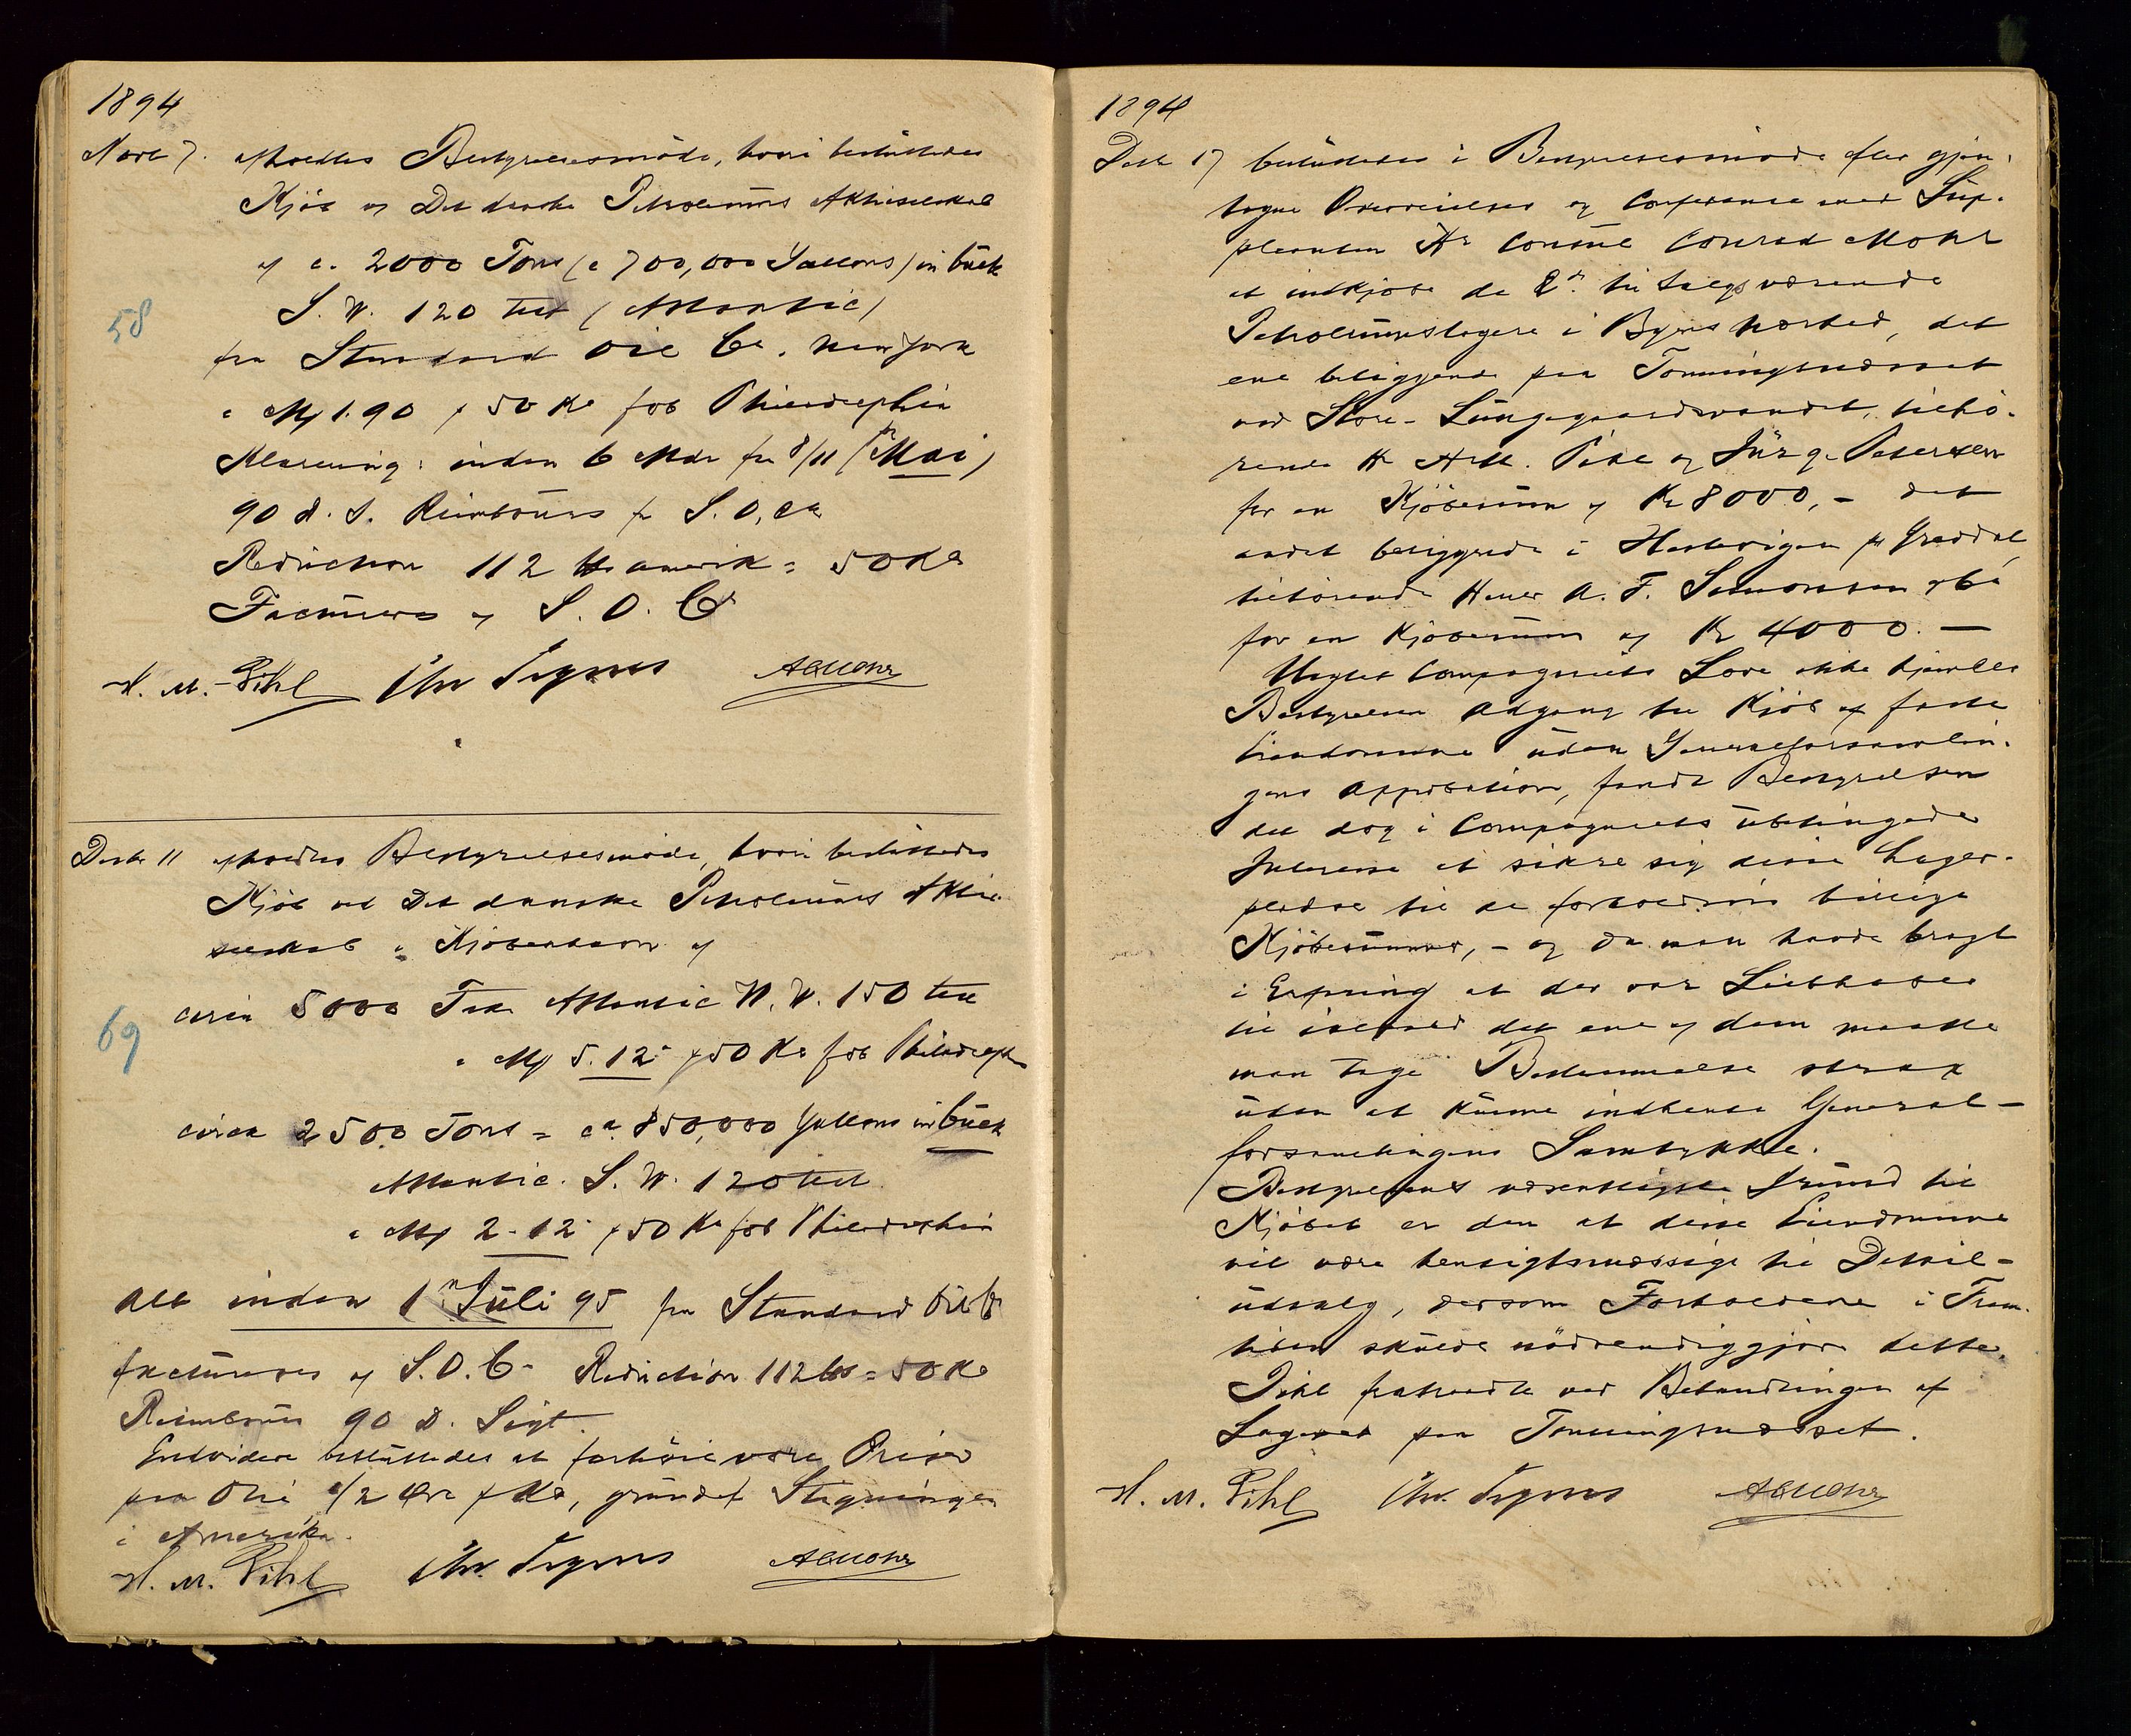 1894
Novb 7. afholdtes Bestyrelsesmöde, hvori besluttedes
Kjöb af Det danske Petroleums Aktieselskab
af c. 2000 Tons (c 700,000 Gallons) in bulk
S. W. 120 test (Atlantic)
58
fra Standard Oil Co. New York
a Mk 1.90 p 50 Ko fob Philadelphia
Klarering: inden 6 Mdr fra 8/11 (Mai)
90 d. S. Reimbours fr S. O. Co
Reduction 112 lbs amerik = 50 Ko
Factureres af S. O. Co
H. M. Pihl Chr Irgens ACMohr
Decbr 11 afholdtes Bestyrelsesmöde, hvori besluttedes
Kjöb ved Det danske Petroleums Aktie
selskab i Kjöbenhavn af
circa 5000 Fade Atlantic W. W. 150 test
69
a Mk 5.12 p 50 Ko fob Philadelph
circa 2500 Tons = ca. 850,000 Gallons in bulk
Atlantic. S. W. 120 test
a Mk 2.12 p 50 Ko fob Philadelphia
Alt inden 1 Juli 95 fra Standard Oil Co
factureres af S. O. Co Reduction 112 lbs = 50 Ko
Reimbours 90 D. Sigt.
Endvidere besluttedes at forhöie vore Priser
paa Olie 1/2 Öre p Ko, grundet Stigningen
i Amerika.
H. M. Pihl Chr. Irgens ACMohr
1894
Decbr 17 besluttedes i Bestyrelsesmöde efter gjen-
tagne Overveielser og Conferance med Sup-
pleanten Hr Consul Conrad Mohr
at indkjöbe de 2de til Salgs værende
Petroleumslagere i Byens Nærhed, det
ene beliggende paa Tonningsnæsset
ved Store-Lungegaardsvandet, tilhö-
rende Hr Pihl og Jürg. Petersen
for en Kjöbesum af Kr 8000,- det
andet beliggende i Hestevigen pr Gravdal
tilhörende Herrer A. F. Simonsen & Co
for en Kjöbesum af Kr 4000.—
Uagtet Compagniets Love ikke hjemler
Bestyrelsen Adgang til Kjöb af faste
Eiendomme uden Generalforsamlin-
gens Approbation, fandt Bestyrelsen
det dog i Compagniets ubetingede
Interesse at sikre sig disse Lager-
pladse til de forholdsvis billige
Kjöbesummer, - og da man havde bragt
i Erfaring at der var Liebhaber
til ialfald det ene af dem maatte
man tage Bestemmelse strax
uden at kunne indhente General-
forsamlingens Samtykke.
Bestyrelsens væsentligste Grund til
Kjöbet er den at disse Eiendomme
vil være hensigtsmæssige til Detail-
udsalg, dersom Forholdene i Frem-
tiden skulde nödvendiggjöre dette.
Pihl fratraadte ved Behandlingen af
Lageret paa Tonningsnæsset.
H. M. Pihl Chr. Irgens ACMohr